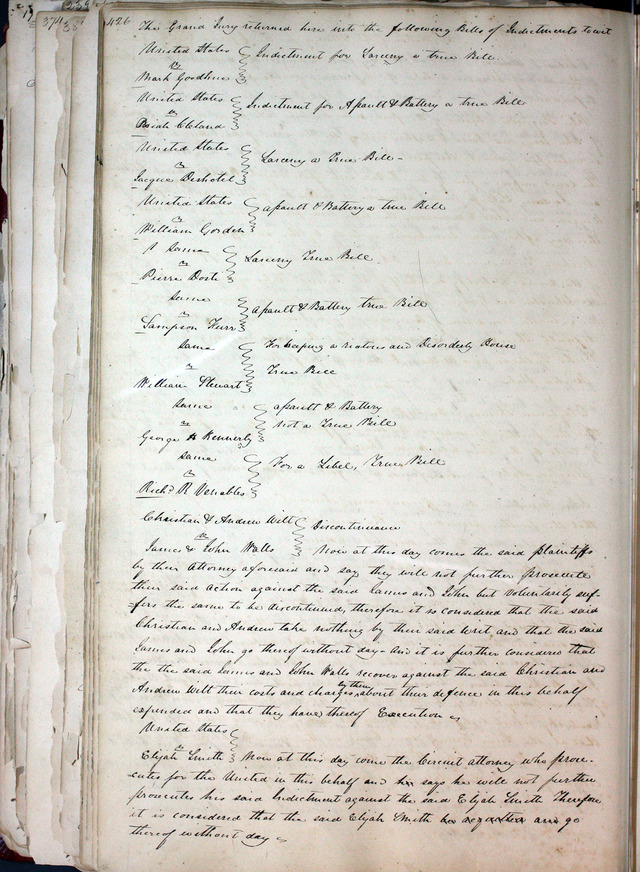 374
426
The Grand Jury returned here into the following Bills of Indictments to wit
United States
vs
Mark Goodhue
Indictment for Larceny a true Bill.
United States
vs
Cleland
Indictment for Assault & Battery a true Bill
United States
vs
Jacque Deshotel
Larceny a True Bill -
United States
vs
William Gorden
Assault & Battery a true Bill
Same
vs
Pierre Dosti
Larceny True Bill
Same
vs
Sampson
Assault & Battery true Bill
Same
vs
William Stewart
For keeping a riotous and Disorderly House
True Bill
Same
vs
George H Kennerly
Assault & Battery
Not a True Bill
Same
vs
Richd. R Venables
For a Libel, True Bill
Christian & Andrew Wilt
vs
James & John Walls
Discontinuance
Now at this day comes the said plaintiffs
by their Attorney aforesaid and say they will not further prosecute
their said action against the said James and John but voluntarily suf-
-fers the same to be discontinued, therefore it is considered that the said
Christian and Andrew take nothing by their said writ and that the said
James and John go thereof without day - and it is further considered that
the the said James and John Walls recover against the said Christian and
Andrew Wilt their costs and charges by them about their defence in this behalf
expended and that they have thereof Execution
United States
vs
Elijah Smith
Now at this day come the Circuit Attorney who prose-
-cutes for the United in this behalf and says he will not further
prosecutes his said Indictment against the said Elijah Smith Therefore
it is considered that the said Elijah Smith go
thereof without day